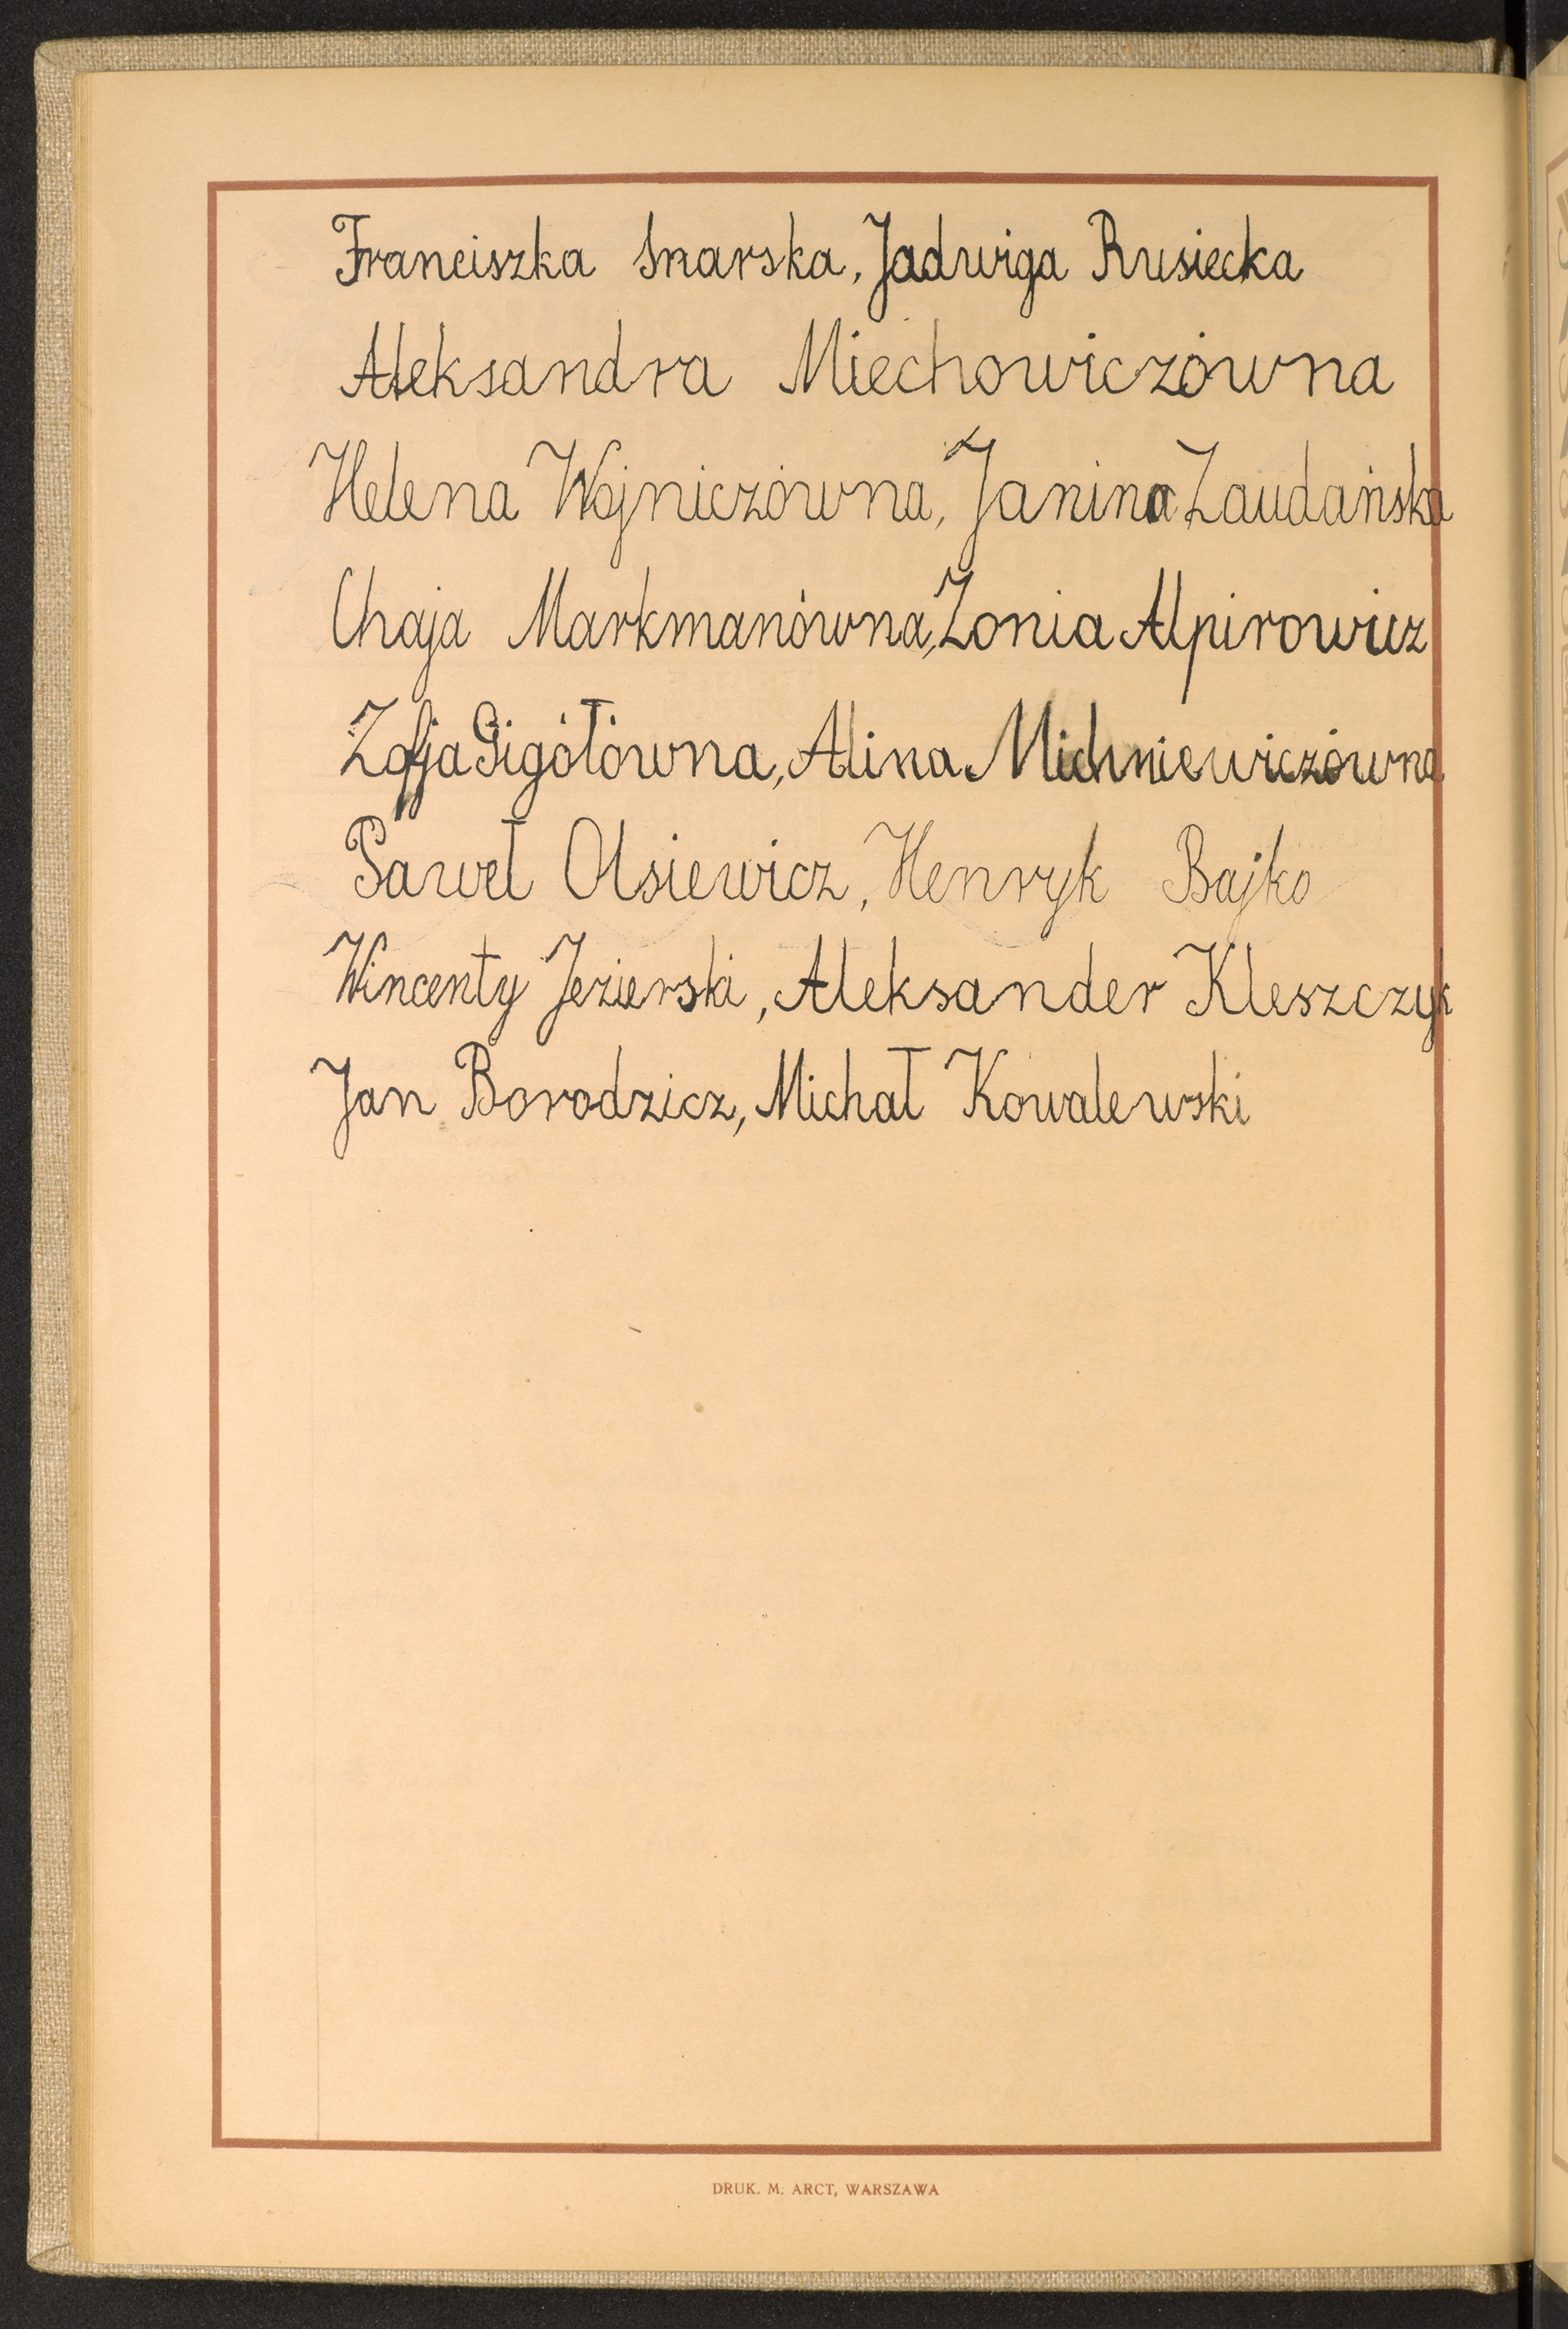 Franciszka Snarska, Jadwiga Rusiecka
Aleksandra Miechowiczówna
Helena Wojniczówna, Janina Zaudańska
Chaja Markmanówna, Zonia Alpirowicz
Zofja Gigółówna, Alina Michniewiczówna
Paweł Olsiewicz, Henryk Bajko
Wincenty Jezierski, Aleksander Kleszczyk
Jan Borodzicz, Michał Kowalewski
DRUK. M. ARCT, WARSZAWA